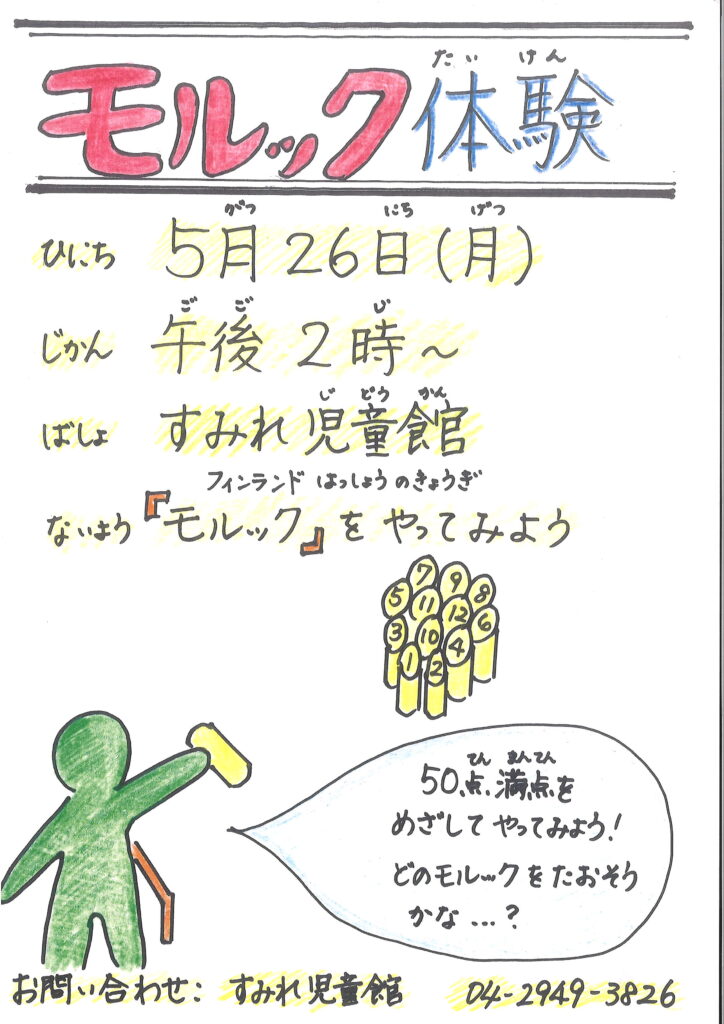 たい けん
モルック体験
がつ にち げつ
ひにち 5月26日(月)
ご ご じ
じかん 午後2時~
じ どう かん
ばしょ すみれ児童館
フィンランド はっしょうのきょうぎ
ないよう『モルック』をやってみよう
7 9 8
5 11 12 6
3 10 4
1 2
てん まんてん
50点満点を
めざしてやってみよう!
どのモルックをたおそう
かな…?
お問い合わせ: すみれ児童館 04-2949-3826